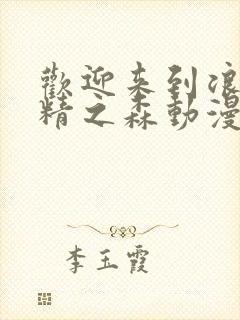 歡迎来到浪
精之森動漫
李玉霞